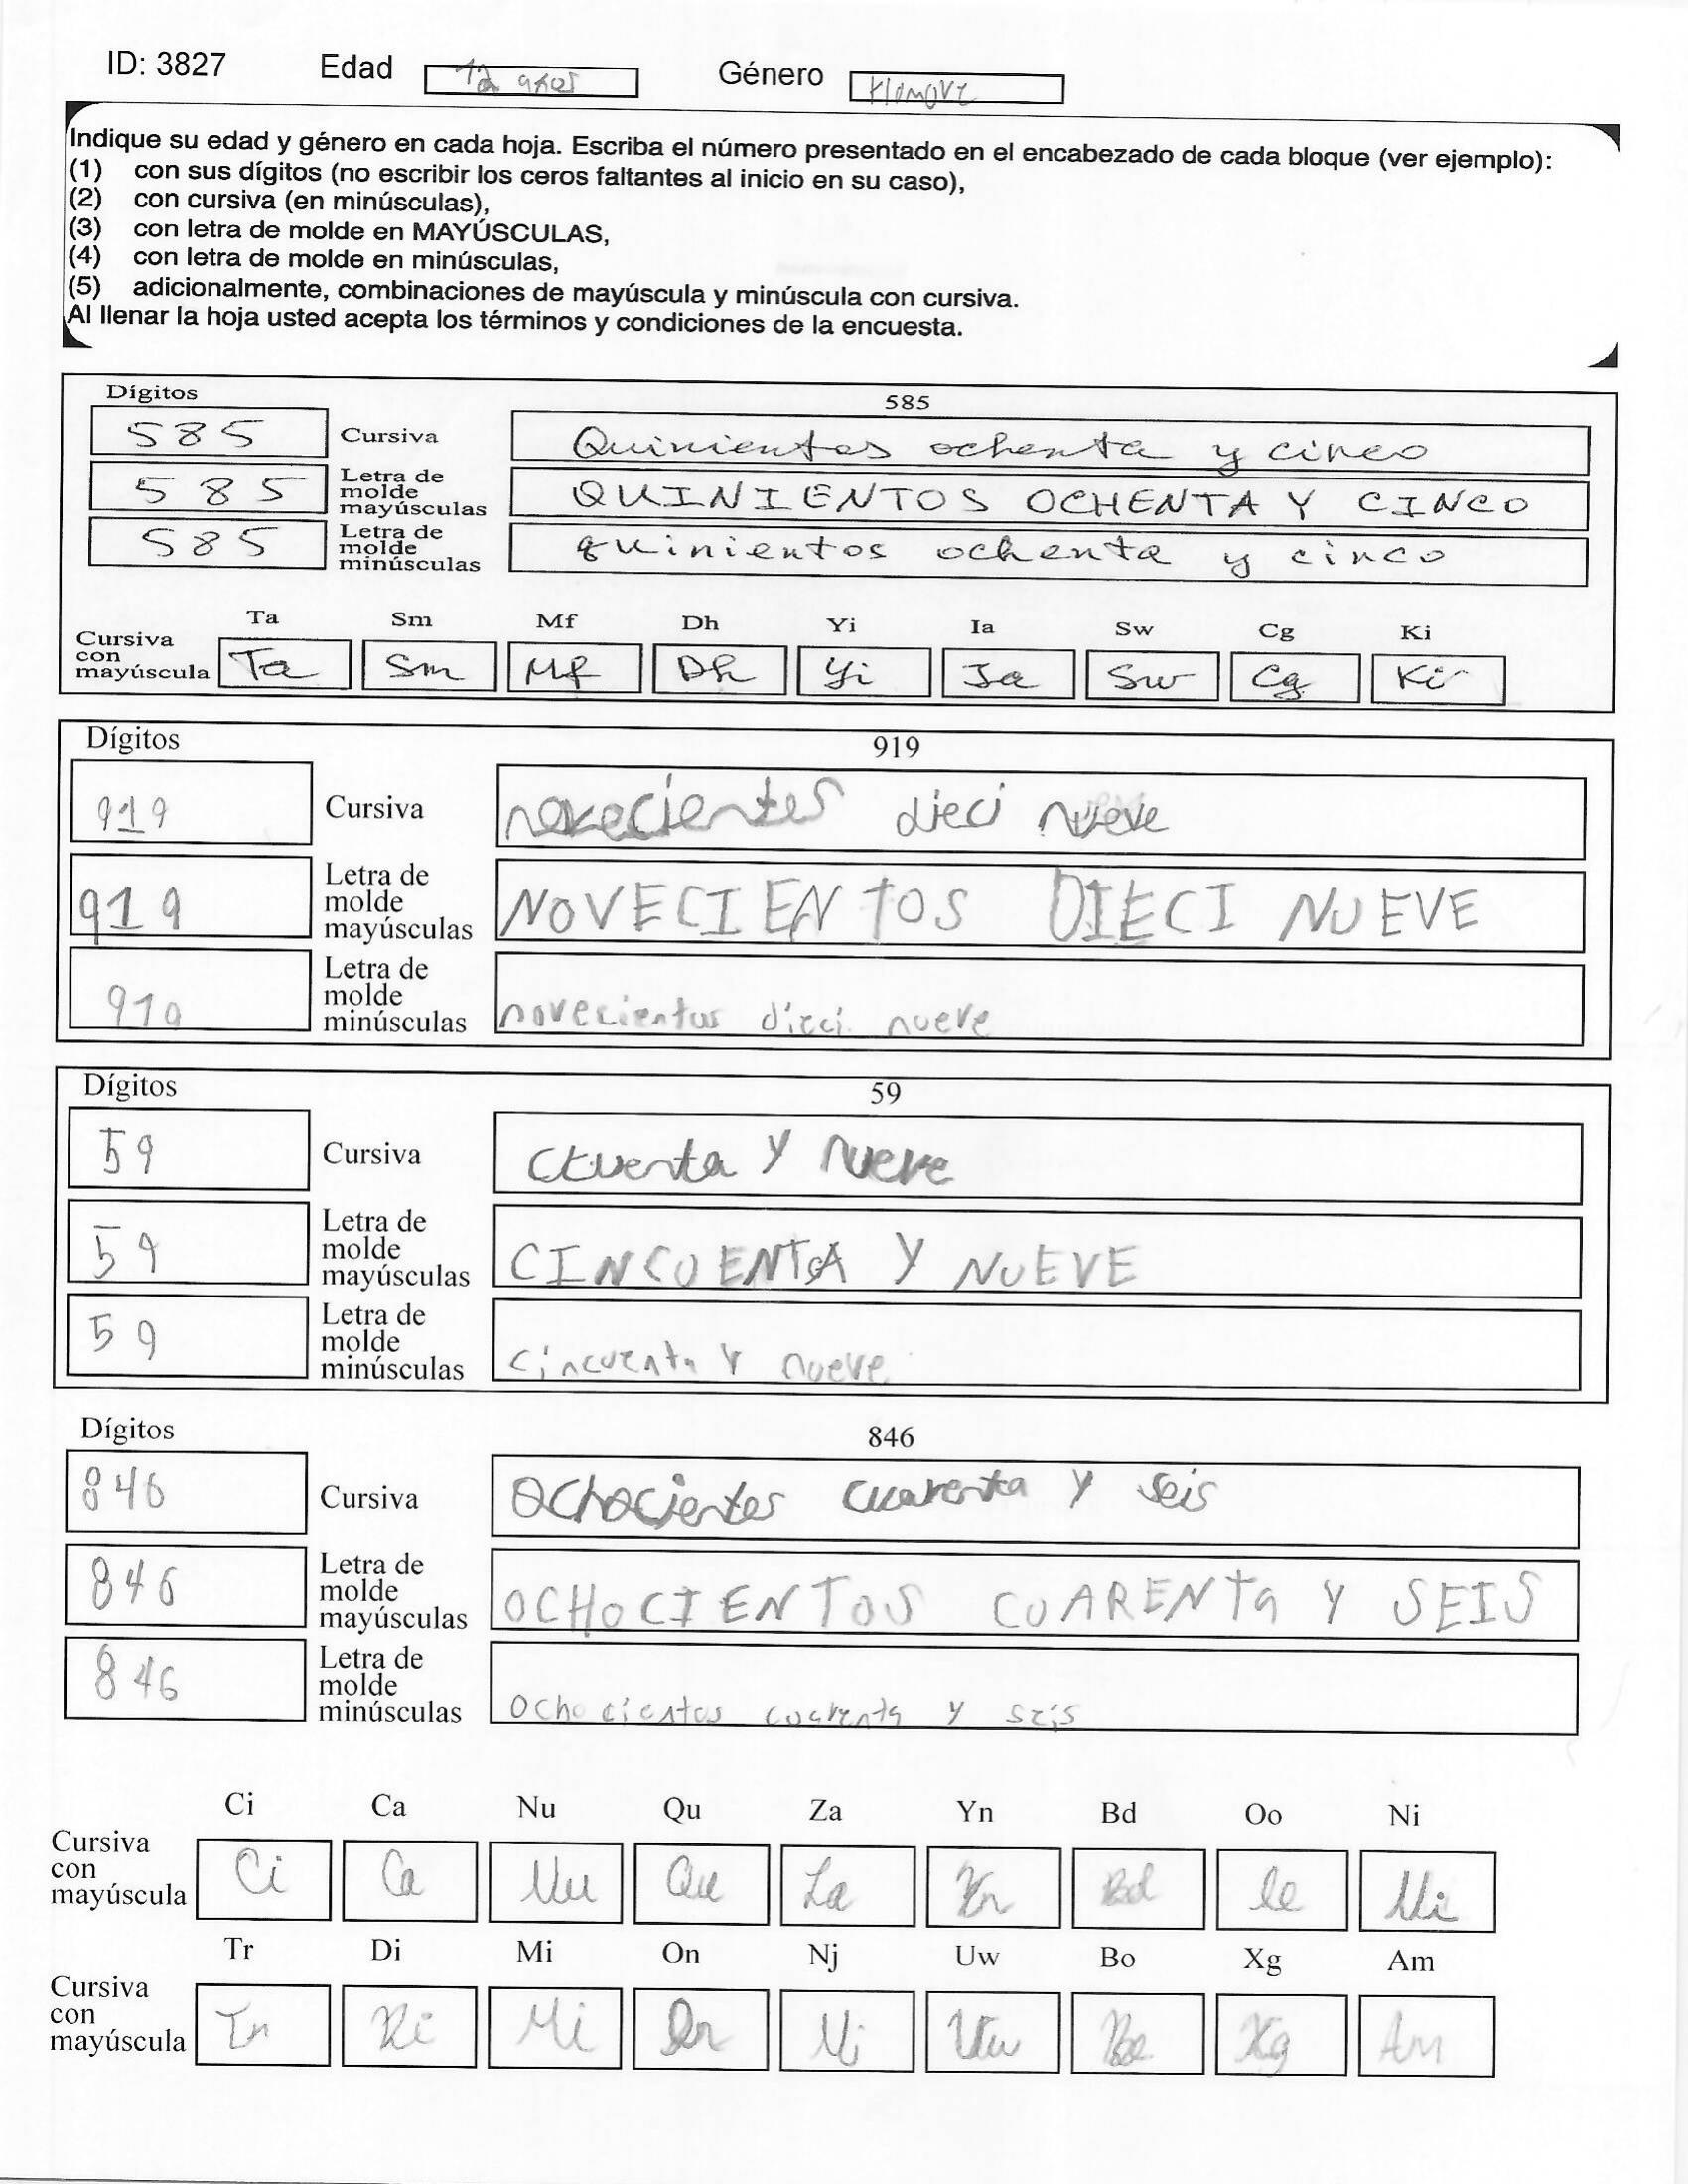 ID: 3827 Edad 12 años Género
Indique su edad y género en cada hoja. Escriba el número presentado en el encabezado de cada bloque (ver ejemplo):
(1) con sus dígitos (no escribir los ceros faltantes al inicio en su caso),
(2) con cursiva (en minúsculas),
(3) con letra de molde en MAYÚSCULAS,
(4) con letra de molde en minúsculas,
(5) adicionalmente, combinaciones de mayúscula y minúscula con cursiva.
Al llenar la hoja usted acepta los términos y condiciones de la encuesta.
Dígitos 585
585 Cursiva Quinientos ochenta y cinco
585 Letra de molde mayúsculas QUINIENTOS OCHENTA Y CINCO
585 Letra de molde minúsculas quinientos ochenta y cinco
Ta Sm Mf Dh Yi Ia Sw Cg Ki
Cursiva con mayúscula Ta Sm Mf Dh Yi Ia Sw Cg Ki
Dígitos 919
919 Cursiva novecientos dieci nueve
919 Letra de molde mayúsculas NOVECIENTOS DIECI NUEVE
919 Letra de molde minúsculas novecientos dieci nueve
Dígitos 59
59 Cursiva y nueve
59 Letra de molde mayúsculas CINCUENTA Y NUEVE
59 Letra de molde minúsculas cincuenta y nueve
Dígitos 846
846 Cursiva Ochocientos cuarenta y seis
846 Letra de molde mayúsculas OCHOCIENTOS CUARENTa Y SEIS
846 Letra de molde minúsculas ochocientos cuarenta y seis
Ci Ca Nu Qu Za Yn Bd Oo Ni
Cursiva con mayúscula Ci Ca Nu Qu Za Yn Bd Oo Ni
Tr Di Mi On Nj Uw Bo Xg Am
Cursiva con mayúscula Tr Di Mi On Nj Uw Bo Xg Am